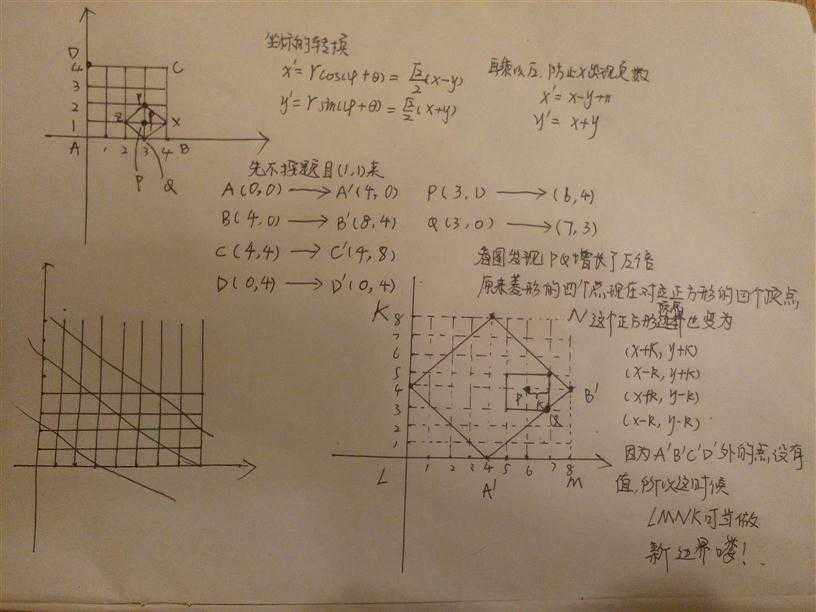 坐标的转换
x' = rcos(φ+θ) = √2/2(x-y)
y' = rsin(φ+θ) = √2/2(x+y)
再乘以√2,防止x出现负数
x' = x-y+n
y' = x+y
D
4 C
3
2 Y
1 Z P X
A 1 2 3 4 B
P Q
先不按题目(1,1)来
A(0,0) → A'(4,0) P(3,1) → (6,4)
B(4,0) → B'(8,4) Q(3,0) → (7,3)
C(4,4) → C'(4,8)
D(0,4) → D'(0,4)
看图发现PQ增长了√2倍
原来菱形的四个点现在对应正方形的四个顶点
这个正方形也变为
(x+k, y+k)
(x-k, y+k)
(x+k, y-k)
(x-k, y-k)
因为A'B'C'D'外的点,没有
值,所以这时候
LMNK可当做
新边界喽!
K N
8
7
6
5
4 P k B'
3 Q
2
1
L 1 2 3 4 5 6 7 8 M
A'